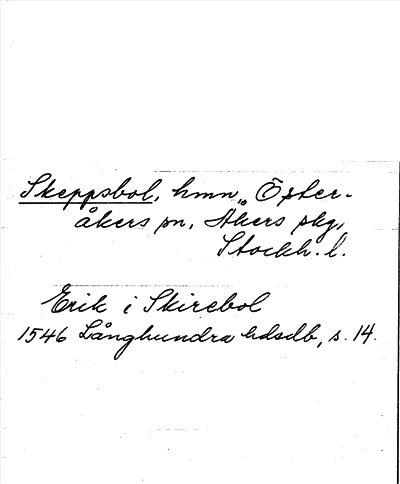 Skeppsbol, hmn, Öster-
åkers sn, Åkers skg,
Stockh. l.
Erik i Skirebol
1546 Långhundra hdsdb, s. 14.